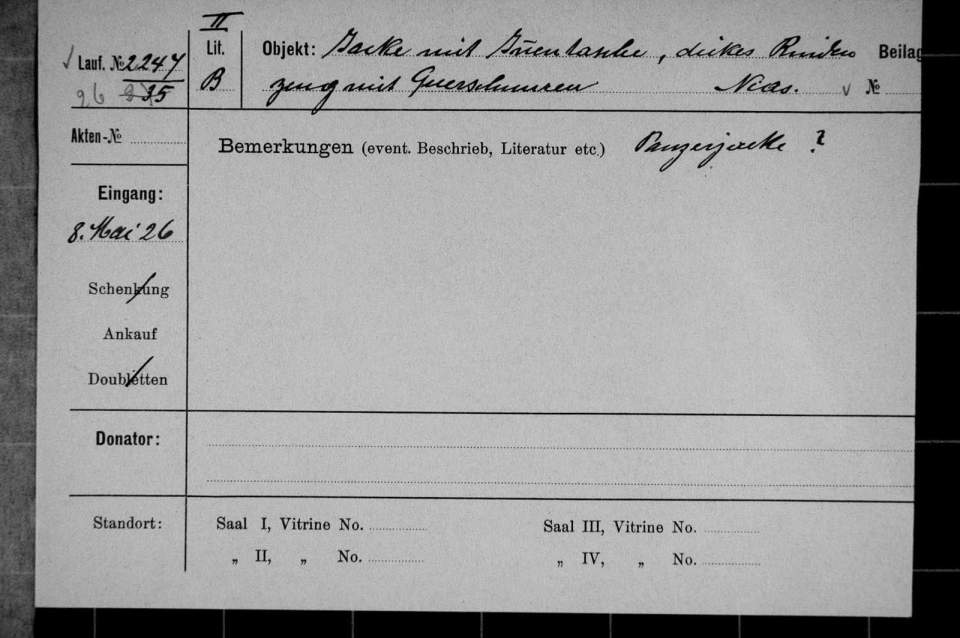 II
Lauf. № 2247
26 35
Lit. B
Objekt: Jacke mit Innentasche, dickes Rinden
zeug mit Querschnüren Nias.
Beilag
№
Akten-№
Bemerkungen (event. Beschrieb, Literatur etc.) Panzerjacke ?
Eingang:
8. Mai 26
Schenkung
Ankauf
Doubletten
Donator:
Standort:
Saal I, Vitrine No.
„ II, „ No.
Saal III, Vitrine No.
„ IV, „ No.